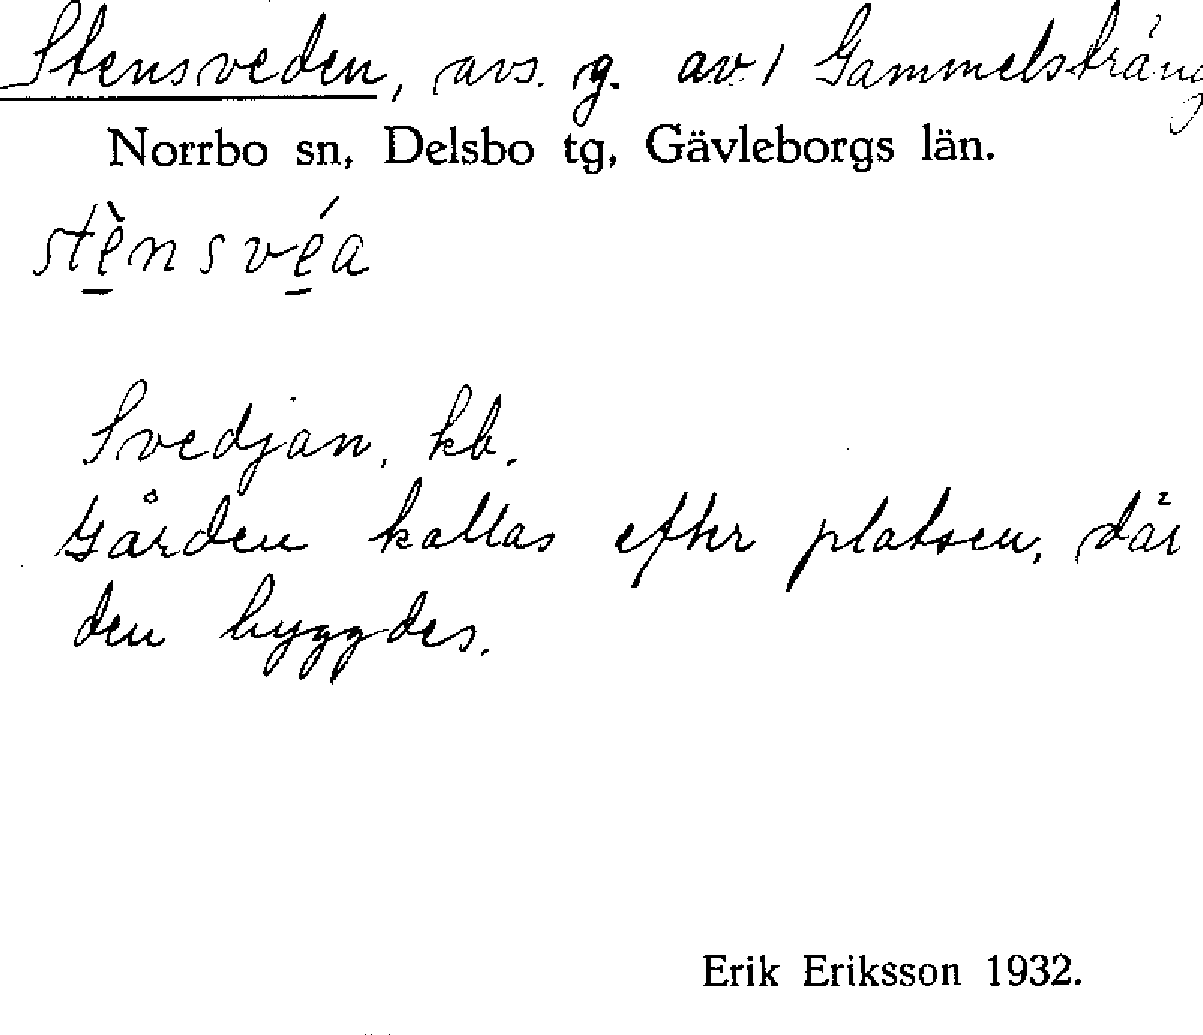 Stensveden, avs. g. av 1 Gammelsträng
Norrbo sn, Delsbo tg, Gävleborgs län.
stè̱nsvé̱a
Svedjan, kb.
Gården kallas efter platsen, där
den byggdes.
Erik Eriksson 1932.